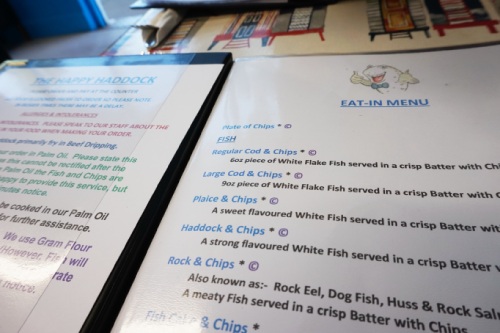 THE HAPPY HADDOCK
PLEASE ORDER AND PAY AT THE COUNTER
ALLERGIES & INTOLERANCES
PLEASE SPEAK TO OUR STAFF ABOUT THE
IN YOUR FOOD WHEN MAKING YOUR ORDER.
primarily fry in Beef Dripping.
order in Palm Oil. Please state this
as this cannot be rectified after the
Palm Oil the Fish and Chips are
to provide this service, but
notice.
be cooked in our Palm Oil
for further assistance.
We use Gram Flour
However, will
rate
notice.
EAT-IN MENU
Plate of Chips * ©
FISH
Regular Cod & Chips * ©
6oz piece of White Flake Fish served in a crisp Batter with C
Large Cod & Chips * ©
9oz piece of White Flake Fish served in a crisp Batter with Ch
Plaice & Chips * ©
A sweet flavoured White Fish served in a crisp Batter
Haddock & Chips * ©
A strong flavoured White Fish served in a crisp Batter w
Rock & Chips * ©
Also known as:- Rock Eel, Dog Fish, Huss & Rock Sal
A meaty Fish served in a crisp Batter with Chips
Fish Cake & Chips *